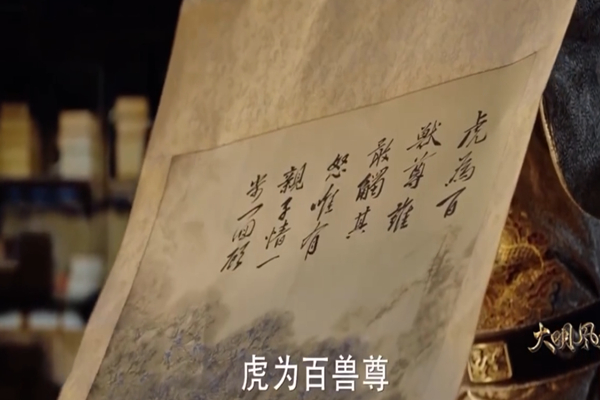 虎為百
獸尊誰
敢觸其
怒唯有
親子情一
步一回顧
大明风
虎为百兽尊